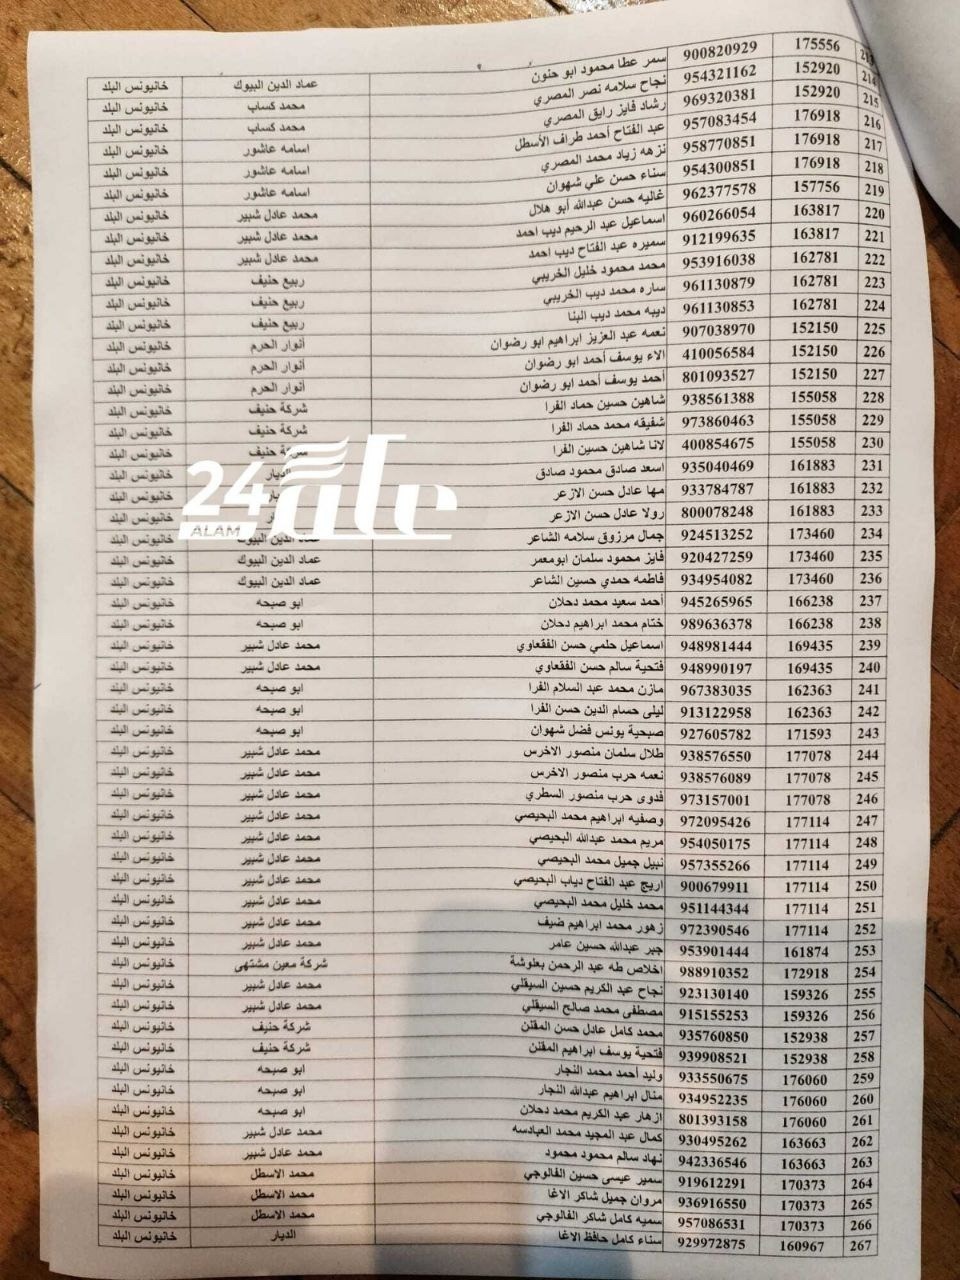 213 175556 900820929 سمر عطا محمود ابو حنون عماد الدين البيوك خانيونس البلد
214 152920 954321162 نجاح سلامه نصر المصري محمد كساب خانيونس البلد
215 152920 969320381 رشاد فايز رايق المصري محمد كساب خانيونس البلد
216 176918 957083454 عبد الفتاح أحمد طراف الأسطل اسامه عاشور خانيونس البلد
217 176918 958770851 نزهه زياد محمد المصري اسامه عاشور خانيونس البلد
218 176918 954300851 سناء حسن علي شهوان اسامه عاشور خانيونس البلد
219 157756 962377578 غاليه حسن عبدالله أبو هلال محمد عادل شبير خانيونس البلد
220 163817 960266054 اسماعيل عبد الرحيم ديب احمد محمد عادل شبير خانيونس البلد
221 163817 912199635 سميره عبد الفتاح ديب احمد محمد عادل شبير خانيونس البلد
222 162781 953916038 محمد محمود خليل الخريبي ربيع حنيف خانيونس البلد
223 162781 961130879 ساره محمد ديب الخريبي ربيع حنيف خانيونس البلد
224 162781 961130853 ديبه محمد ديب البنا ربيع حنيف خانيونس البلد
225 152150 907038970 نعمه عبد العزيز ابراهيم ابو رضوان أنوار الحرم خانيونس البلد
226 152150 410056584 الاء يوسف أحمد ابو رضوان أنوار الحرم خانيونس البلد
227 152150 801093527 أحمد يوسف أحمد ابو رضوان أنوار الحرم خانيونس البلد
228 155058 938561388 شاهين حسين حماد الفرا شركة حنيف خانيونس البلد
229 155058 973860463 شفيقه محمد حماد الفرا شركة حنيف خانيونس البلد
230 155058 400854675 لانا شاهين حسين الفرا شركة حنيف خانيونس البلد
231 161883 935040469 اسعد صادق محمود صادق الديار خانيونس البلد
232 161883 933784787 مها عادل حسن الازعر خانيونس البلد
233 161883 800078248 رولا عادل حسن الازعر خانيونس البلد
علم 24
ALAM
234 173460 924513252 جمال مرزوق سلامه الشاعر عماد الدين البيوك خانيونس البلد
235 173460 920427259 فايز محمود سلمان ابومعمر عماد الدين البيوك خانيونس البلد
236 173460 934954082 فاطمه حمدي حسين الشاعر عماد الدين البيوك خانيونس البلد
237 166238 945265965 أحمد سعيد محمد دحلان ابو صبحه خانيونس البلد
238 166238 989636378 ختام محمد ابراهيم دحلان ابو صبحه خانيونس البلد
239 169435 948981444 اسماعيل حلمي حسن الفقعاوي محمد عادل شبير خانيونس البلد
240 169435 948990197 فتحية سالم حسن الفقعاوي محمد عادل شبير خانيونس البلد
241 162363 967383035 مازن محمد عبد السلام الفرا ابو صبحه خانيونس البلد
242 162363 913122958 ليلى حسام الدين حسن الفرا ابو صبحه خانيونس البلد
243 171593 927605782 صبحية يونس فضل شهوان ابو صبحه خانيونس البلد
244 177078 938576550 طلال سلمان منصور الاخرس محمد عادل شبير خانيونس البلد
245 177078 938576089 نعمه حرب منصور الاخرس محمد عادل شبير خانيونس البلد
246 177078 973157001 فدوى حرب منصور السطري محمد عادل شبير خانيونس البلد
247 177114 972095426 وصفيه ابراهيم محمد البحيصي محمد عادل شبير خانيونس البلد
248 177114 954050175 مريم محمد عبدالله البحيصي محمد عادل شبير خانيونس البلد
249 177114 957355266 نبيل جميل محمد البحيصي محمد عادل شبير خانيونس البلد
250 177114 900679911 اريج عبد الفتاح دياب البحيصي محمد عادل شبير خانيونس البلد
251 177114 951144344 محمد خليل محمد البحيصي محمد عادل شبير خانيونس البلد
252 177114 972390546 زهور محمد ابراهيم ضيف محمد عادل شبير خانيونس البلد
253 161874 953901444 جبر عبدالله حسين عامر محمد عادل شبير خانيونس البلد
254 172918 988910352 اخلاص طه عبد الرحمن بعلوشة شركة معين مشتهى خانيونس البلد
255 159326 923130140 نجاح عبد الكريم حسين السيقلي محمد عادل شبير خانيونس البلد
256 159326 915155253 مصطفى محمد صالح السيقلي محمد عادل شبير خانيونس البلد
257 152938 935760850 محمد كامل عادل حسن المقنن شركة حنيف خانيونس البلد
258 152938 939908521 فتحية يوسف ابراهيم المقنن شركة حنيف خانيونس البلد
259 176060 933550675 وليد أحمد محمد النجار ابو صبحه خانيونس البلد
260 176060 934952235 منال ابراهيم عبدالله النجار ابو صبحه خانيونس البلد
261 176060 801393158 ازهار عبد الكريم محمد دحلان ابو صبحه خانيونس البلد
262 163663 930495262 كمال عبد المجيد محمد العبادسه محمد عادل شبير خانيونس البلد
263 163663 942336546 نهاد سالم محمود محمود محمد عادل شبير خانيونس البلد
264 170373 919612291 سمير عيسى حسين الفالوجي محمد الاسطل خانيونس البلد
265 170373 936916550 مروان جميل شاكر الاغا محمد الاسطل خانيونس البلد
266 170373 957086531 سميه كامل شاكر الفالوجي محمد الاسطل خانيونس البلد
267 160967 929972875 سناء كامل حافظ الاغا الديار خانيونس البلد